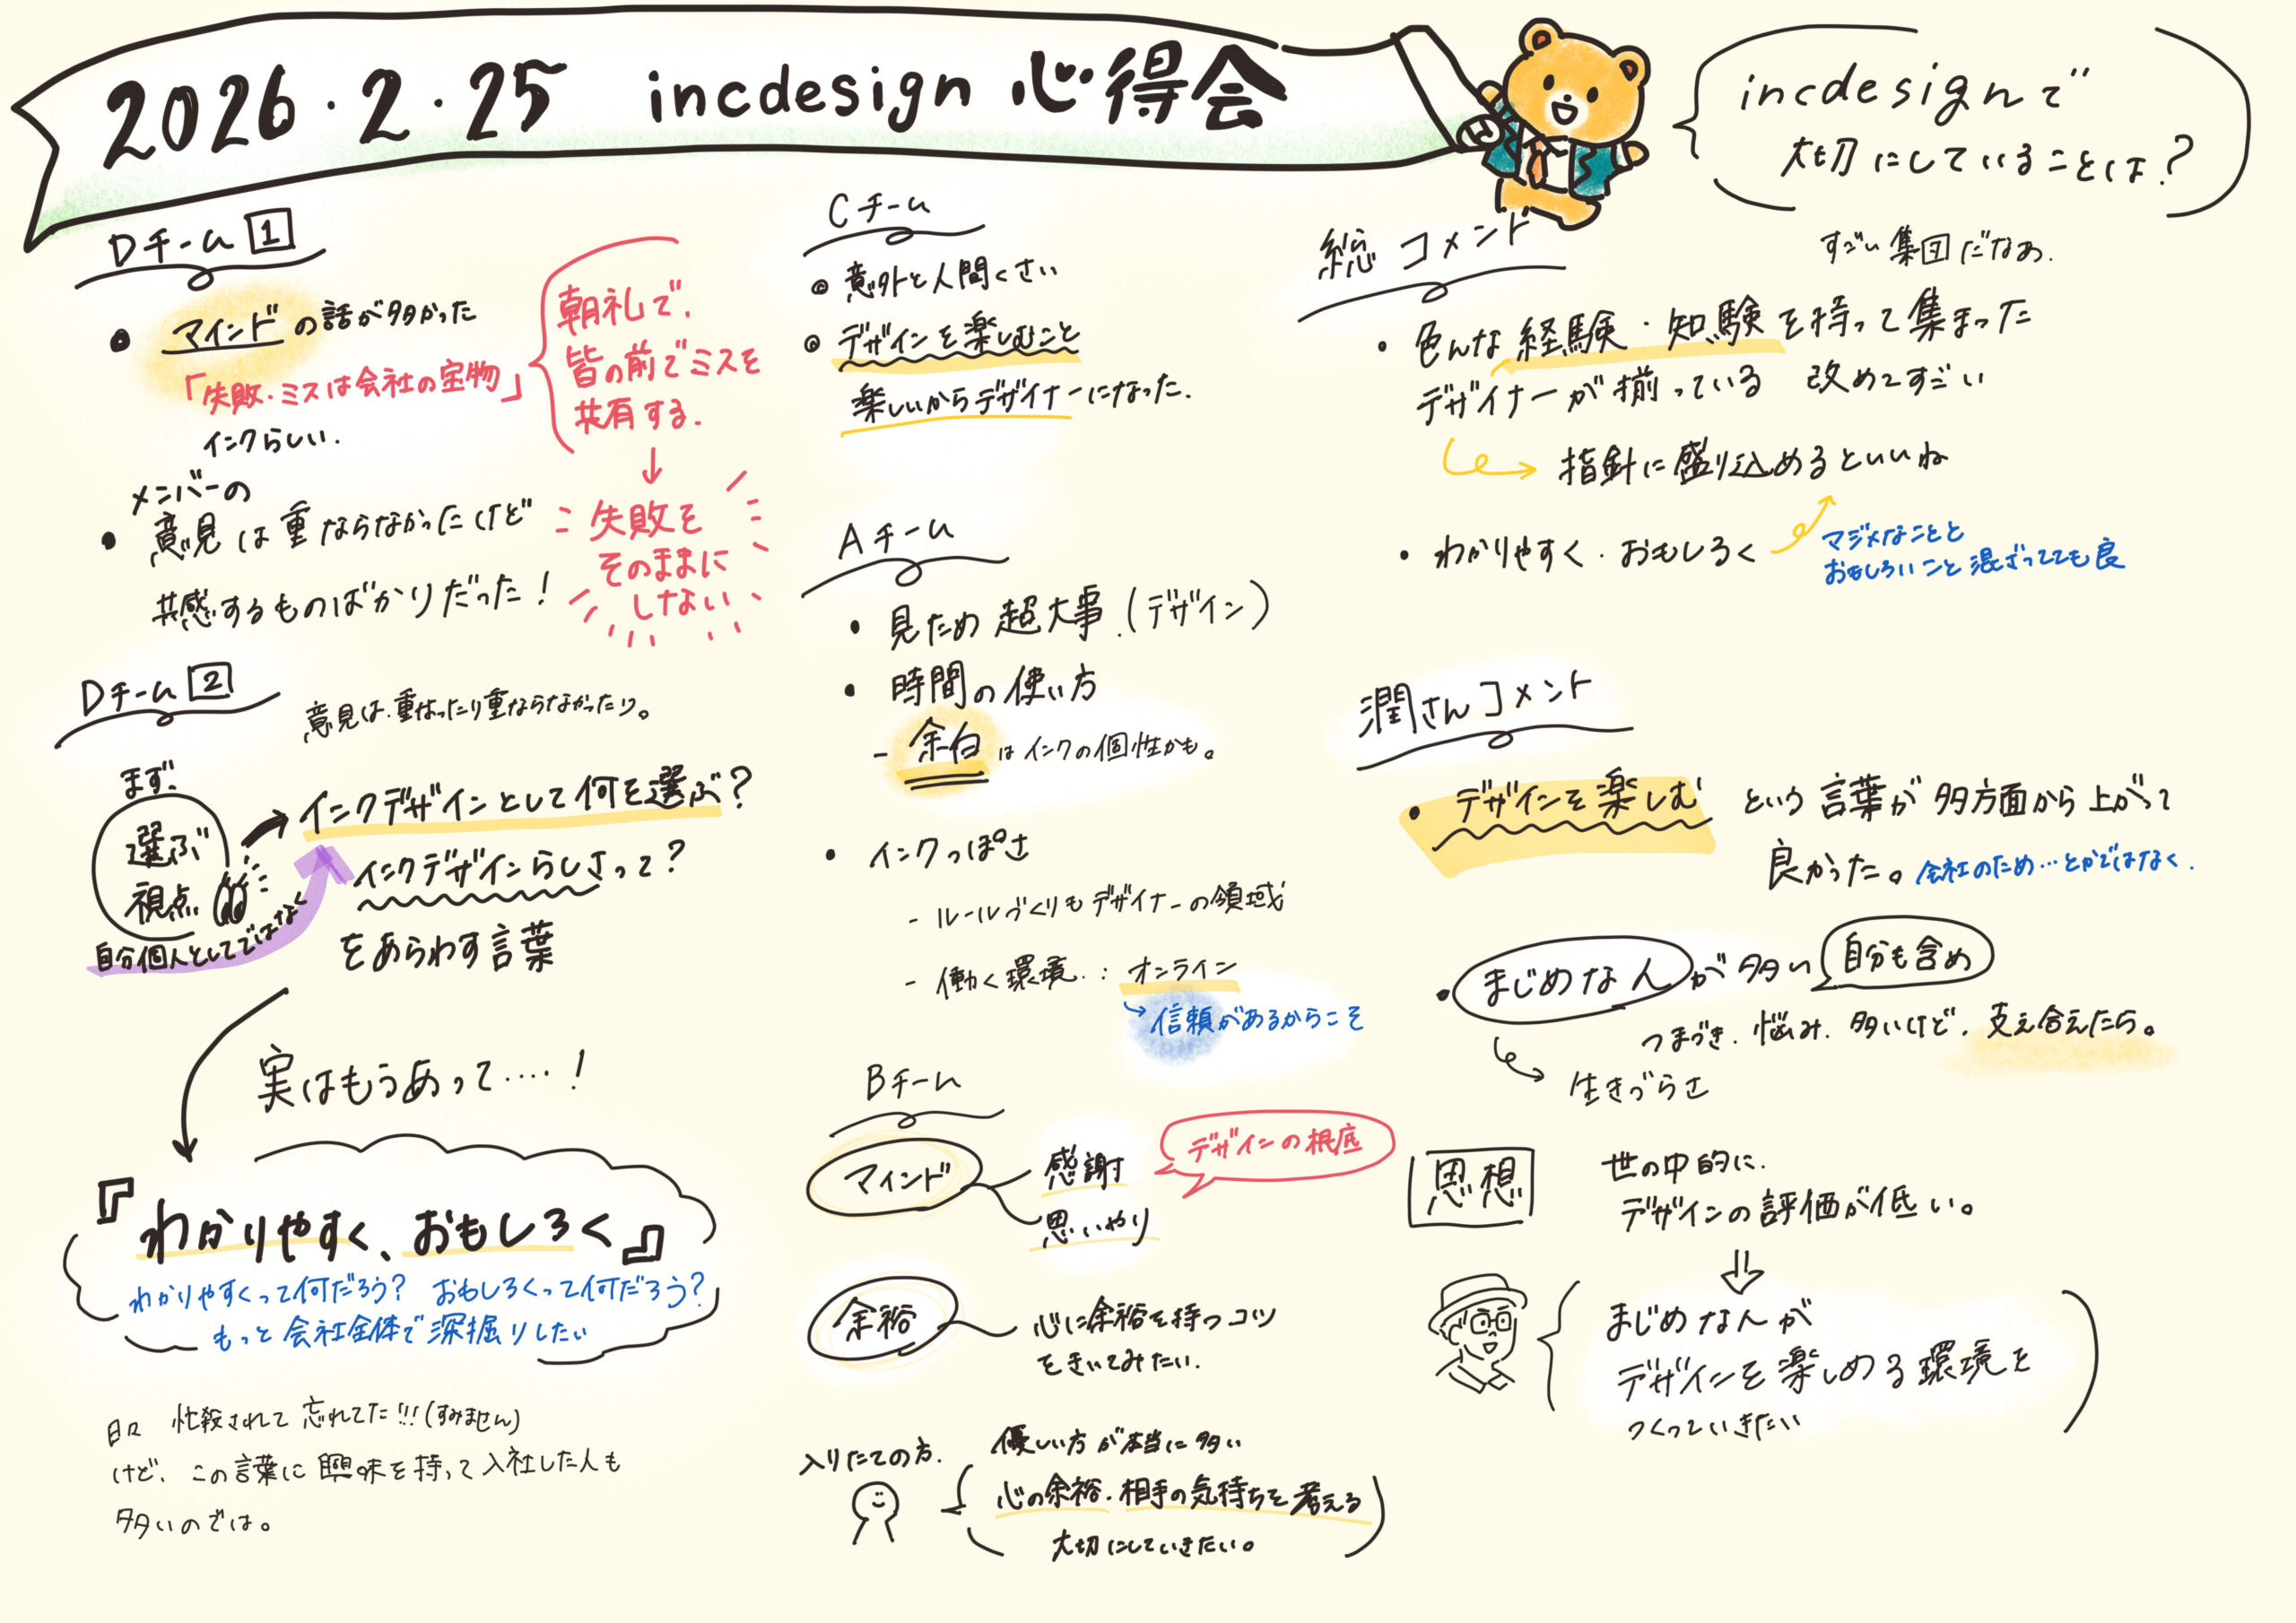 2026.2.25 incdesign 心得会
incdesignで
大切にしていることは?
Dチーム 1
・マインドの話が多かった
「失敗・ミスは会社の宝物」
インクらしい.
朝礼で、
皆の前でミスを
共有する.
↓
失敗を
そのままに
しない
メンバーの
・意見は重ならなかったけど
共感するものばかりだった!
Dチーム 2
意見は、重なったり重ならなかったり。
まず、
選ぶ
視点
自分個人としてではなく
→インクデザインとして何を選ぶ?
インクデザインらしさって?
をあらわす言葉
実はもうあって……!
『わかりやすく、おもしろく』
わかりやすくって何だろう? おもしろくって何だろう?
もっと会社全体で深掘りしたい
日々 忙殺されて忘れてた!!!(すみません)
けど、この言葉に興味を持って入社した人も
多いのでは。
Cチーム
◎ 意外と人間くさい
◎ デザインを楽しむこと
楽しいからデザイナーになった.
Aチーム
・見ため超大事.(デザイン)
・時間の使い方
- 余白はインクの個性かも。
・インクっぽさ
- ルールづくりもデザイナーの領域
- 働く環境‥: オンライン
→信頼があるからこそ
Bチーム
マインド
感謝
思いやり
デザインの根底
余裕
心に余裕を持つコツ
をきいてみたい.
入りたての方.
優しい方が本当に多い
心の余裕・相手の気持ちを考える
大切にしていきたい。
総コメント
すごい集団だなあ.
・色んな経験・知験を持って集まった
デザイナーが揃っている 改めてすごい
→指針に盛り込めるといいね
・わかりやすく・おもしろく
マジメなことと
おもしろいこと混ざってても良
潤さんコメント
・デザインを楽しむ という言葉が多方面から上がって
良かった。会社のため…とかではなく.
・まじめな人が多い
自分も含め
つまづき、悩み、多いけど、支え合えたら。
→生きづらさ
思想
世の中的に、
デザインの評価が低い。
⇓
まじめな人が
デザインを楽しめる環境を
つくっていきたい